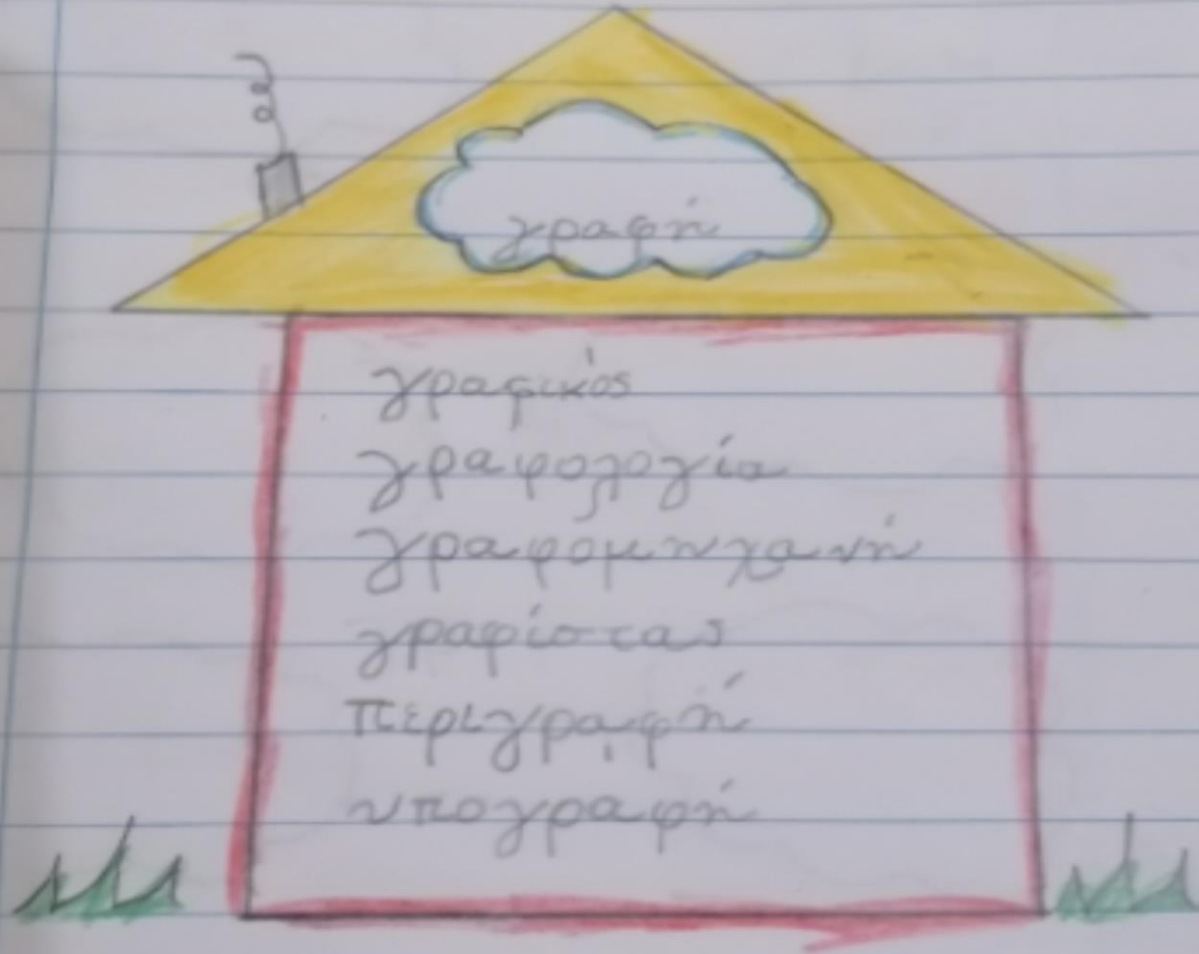 γραφή
γραφικός
γραφολογία
γραφομηχανή
γραφίστας
περιγραφή
υπογραφή